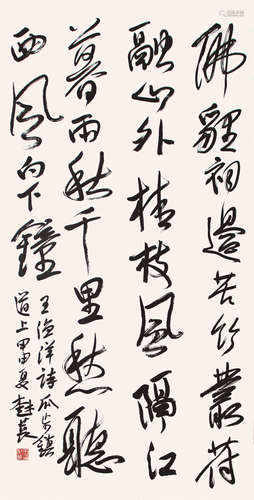 佛貍祠邊苦竹叢符
融山外桂枝風隔江
暮雨秋千里愁聽
西風白下鐘
王漁洋詩瓜步鎮
道上甲申夏